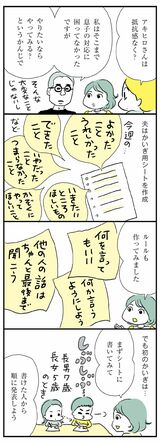 アキヒロさんは
抵抗感なく？
私はそこまで
息子の対応に
困ってなかった
ですが
やりたいなら
やってみる？
というかんじで
そんな
大変なこと
じゃないし
夫はかいぎ用シートを作成
今週の
よかった
うれしかった
こと
できた
こと
いやだった
つまらなかった
こと
など
ルールも
作ってみました
何を言って
もいい
何か言う
ようにしよう
他の人の話は
ちゃんと最後まで
聞こう
でも初のかいぎは…
まずシートに
書いてみて
じぶじぶ
長男7歳
長女5歳
のとき
書けた人から
順に発表しよう